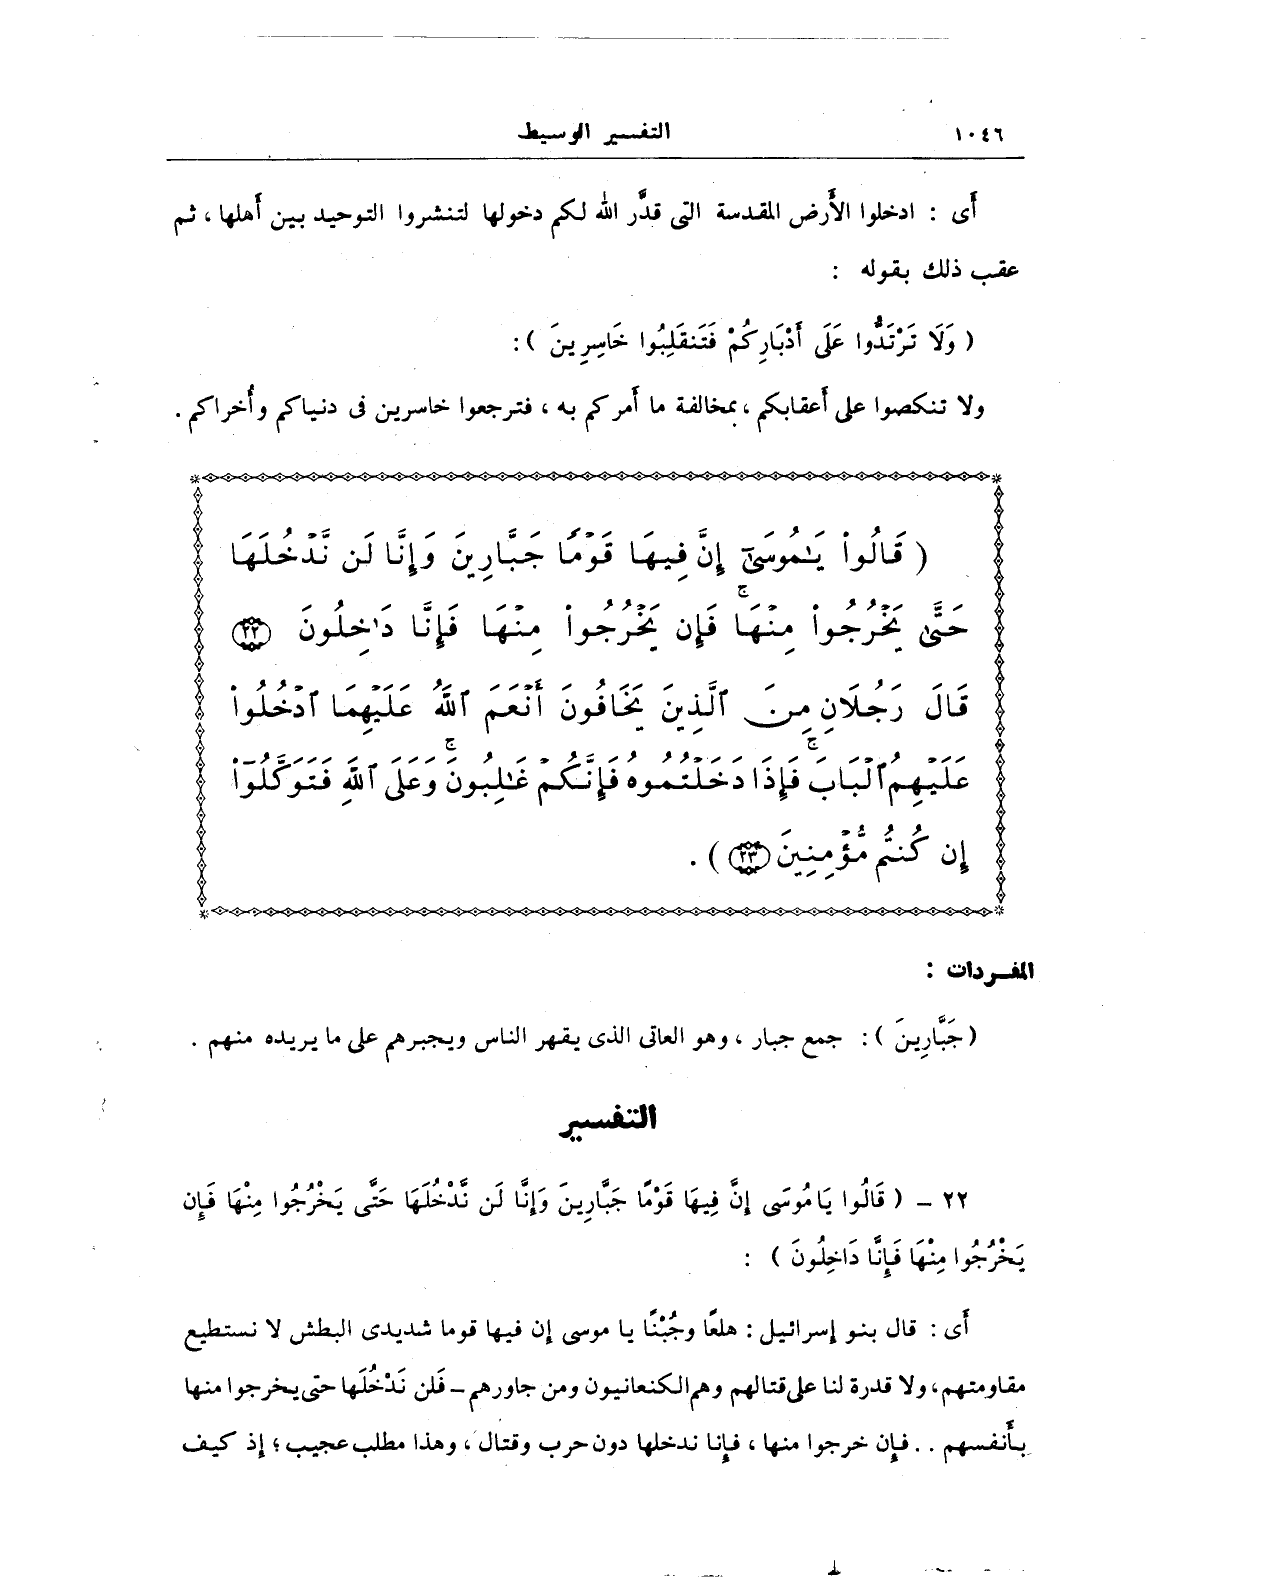 ١٠٤٦ التفسير الوسيط
أَى : ادخلوا الأَرض المقدسة التى قدَّر الله لكم دخولها لتنشروا التوحيد بين أَهلها ، ثم
عقب ذلك بقوله :
( وَلَا تَرْتَدُّوا عَلَى أَدْبَارِكُمْ فَتَنقَلِبُوا خَاسِرِينَ ) :
ولا تنكصوا على أَعقابكم ، بمخالفة ما أَمركم به ، فترجعوا خاسرين فى دنياكم وأُخراكم .
( قَالُواْ يَٰمُوسَىٰٓ إِنَّ فِيهَا قَوْمًا جَبَّارِينَ وَإِنَّا لَن نَّدْخُلَهَا
حَتَّىٰ يَخْرُجُواْ مِنْهَا ۚ فَإِن يَخْرُجُواْ مِنْهَا فَإِنَّا دَٰخِلُونَ ٢٢
قَالَ رَجُلَانِ مِنَ ٱلَّذِينَ يَخَافُونَ أَنْعَمَ ٱللَّهُ عَلَيْهِمَا ٱدْخُلُواْ
عَلَيْهِمُ ٱلْبَابَ ۚ فَإِذَا دَخَلْتُمُوهُ فَإِنَّكُمْ غَٰلِبُونَ ۚ وَعَلَى ٱللَّهِ فَتَوَكَّلُوٓاْ
إِن كُنتُم مُّؤْمِنِينَ ٢٣ ) .
المفـردات :
( جَبَّارِينَ ) : جمع جبار ، وهو العاتى الذى يقهر الناس ويجبرهم على ما يريده منهم .
التفسير
٢٢ - ( قَالُوا يَا مُوسَى إِنَّ فِيهَا قَوْمًا جَبَّارِينَ وَإِنَّا لَن نَّدْخُلَهَا حَتَّى يَخْرُجُوا مِنْهَا فَإِن
يَخْرُجُوا مِنْهَا فَإِنَّا دَاخِلُونَ ) :
أَى : قال بنو إسرائيل : هلعًا وجُبْنًا يا موسى إن فيها قوما شديدى البطش لا نستطيع
مقاومتهم ، ولا قدرة لنا على قتالهم وهم الكنعانيون ومن جاورهم – فَلن نَدْخُلَها حتى يخرجوا منها
بأَنفسهم . . فإن خرجوا منها ، فإنا ندخلها دون حرب وقتال ، وهذا مطلب عجيب ؛ إذ كيف